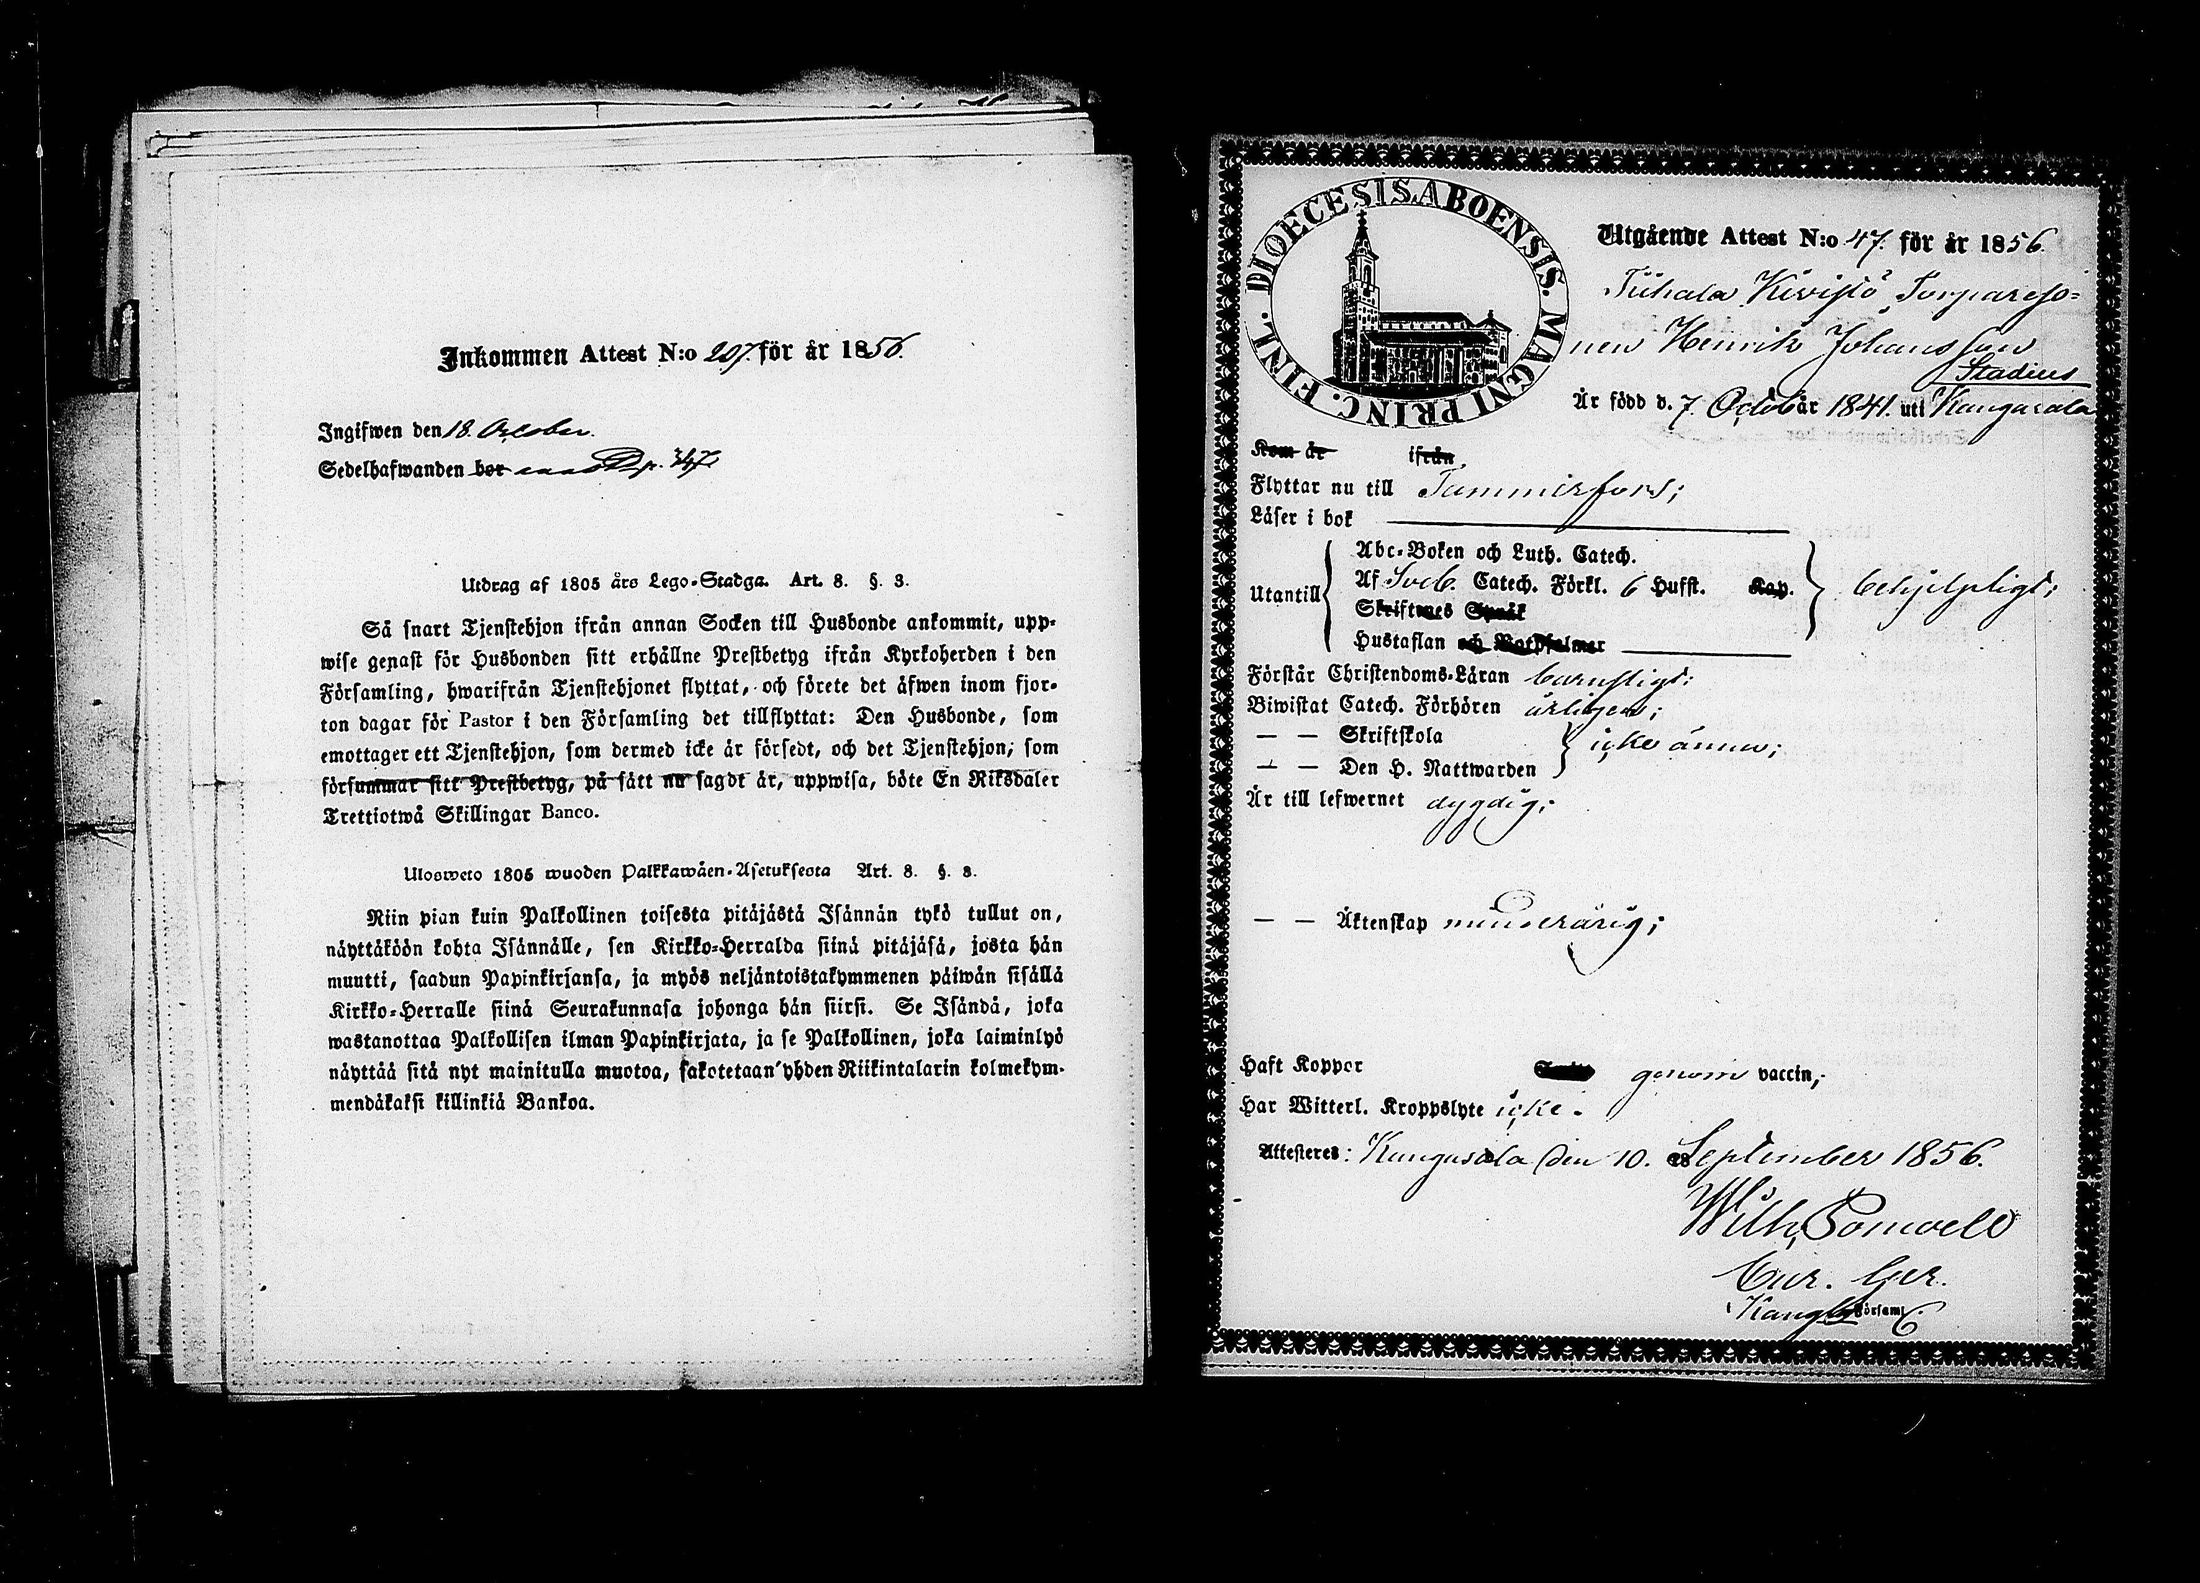 Inkommen Attest N:o 207. för år 1856.
Ingifwen den 18. October.
Sedelhafwanden bor p. 347.
Utdrag af 1805 års Lego-Stadga. Art. 8. §. 3.
Så snart Tjenstehjon ifrån annan Socken till Husbonde ankommit, upp-
wise genast för Husbonden sitt erhållne Prestbetyg ifrån Kyrkoherden i den
Församling, hwarifrån Tjenstehjonet flyttat, och förete det äfwen inom fjor-
ton dagar för Pastor i den Församling det tillflyttat: Den Husbonde, som
emottager ett Tjenstehjon, som dermed icke är försedt, och det Tjenstehjon, som
försummar sitt Prestbetyg, på sätt nu sagdt är, uppwisa, böte En Riksdaler
Trettiotwå Skillingar Banco.
Ulosweto 1805 wuoden Palkkawäen-Asetuksesta Art. 8. §. 3.
Niin pian kuin Palkollinen toisesta pitäjästä Isännän tykö tullut on,
näyttäköön kohta Isännälle, sen Kirkko-Herralda siinä pitäjäsä, josta hän
muutti, saadun Papinkirjansa, ja myös neljäntoistakymmenen päiwän sisällä
Kirkko-Herralle siinä Seurakunnasa johonga hän siirsi. Se Isändä, joka
wastanottaa Palkollisen ilman Papinkirjata, ja se Palkollinen, joka laiminlyö
näyttää sitä nyt mainitulla muotoa, sakotetaan yhden Riikintalarin kolmekym-
mendäkaksi killinkiä Bankoa.
DIOECESIS ABOENSIS. MAGNI PRINC. FINL.
Utgående Attest N:o 47. för år 1856.
Tiihala Kivistö Torpareso-
nen Henrik Johansson
Stadius
Är född d. 7 October 1841. uti Kangasala
Kom år ifrån
Flyttar nu till Tammerfors;
Läser i bok
Utantill
Abc-Boken och Luth. Catech.
Af Sveb. Catech. Förkl. 6 Hufst. Kap. behjelpligt;
Skriftenes Språk
Hustaflan och Botpsalmer
Förstår Christendoms-Läran barnsligt;
Biwistat Catech. Förhören årligen;
— — Skriftskola icke ännu;
— — Den H. Nattwarden
Är till lefwernet dygdig;
— — Äktenskap minderårig;
Haft Koppor genom vaccin,
Har Witterl. Kroppslyte icke.
Attesteres: Kangasala den 10. September 1856.
Wilh. Pomoell
Cur. Ger.
i Kangla Församl.